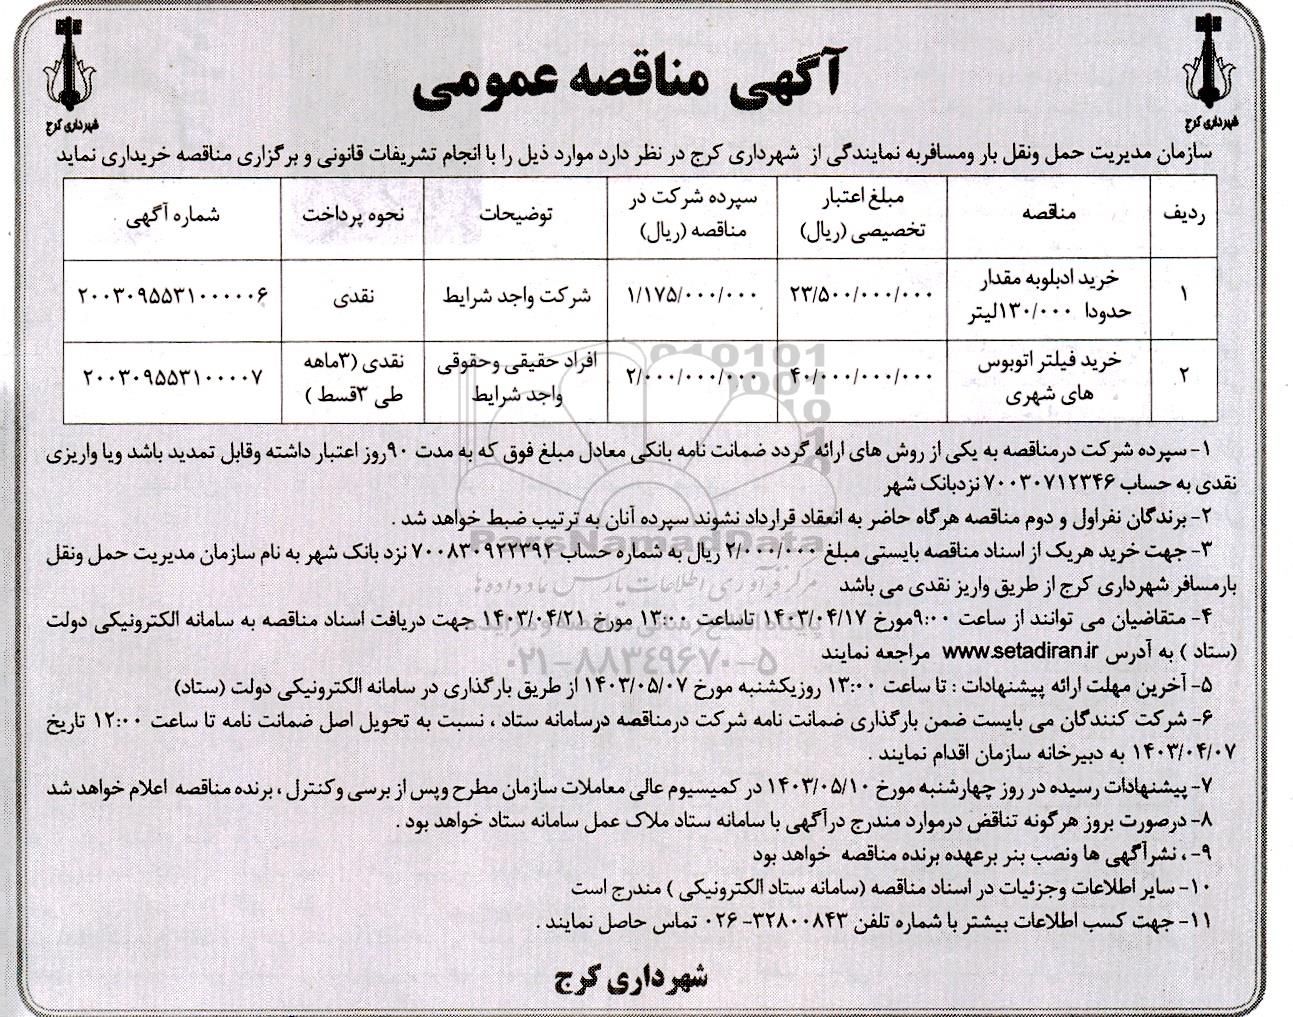 شهرداری کرج
شهرداری کرج
آگهی مناقصه عمومی
سازمان مدیریت حمل ونقل بار ومسافربه نمایندگی از شهرداری کرج در نظر دارد موارد ذیل را با انجام تشریفات قانونی و برگزاری مناقصه خریداری نماید
ردیف | مناقصه | مبلغ اعتبار تخصیصی (ریال) | سپرده شرکت در مناقصه (ریال) | توضیحات | نحوه پرداخت | شماره آگهی
۱ | خرید ادبلوبه مقدار حدودا ۱۳۰/۰۰۰لیتر | ۲۳/۵۰۰/۰۰۰/۰۰۰ | ۱/۱۷۵/۰۰۰/۰۰۰ | شرکت واجد شرایط | نقدی | ۲۰۰۳۰۹۵۵۳۱۰۰۰۰۰۶
۲ | خرید فیلتر اتوبوس های شهری | ۴۰/۰۰۰/۰۰۰/۰۰۰ | ۲/۰۰۰/۰۰۰/۰۰۰ | افراد حقیقی وحقوقی واجد شرایط | نقدی (۳ماهه طی ۳قسط ) | ۲۰۰۳۰۹۵۵۳۱۰۰۰۰۷
۱- سپرده شرکت درمناقصه به یکی از روش های ارائه گردد ضمانت نامه بانکی معادل مبلغ فوق که به مدت ۹۰روز اعتبار داشته وقابل تمدید باشد ویا واریزی
نقدی به حساب ۷۰۰۳۰۷۱۲۳۴۶ نزدبانک شهر
۲- برندگان نفراول و دوم مناقصه هرگاه حاضر به انعقاد قرارداد نشوند سپرده آنان به ترتیب ضبط خواهد شد .
۳- جهت خرید هریک از اسناد مناقصه بایستی مبلغ ۲/۰۰۰/۰۰۰ ریال به شماره حساب ۷۰۰۸۳۰۹۲۲۳۹۲ نزد بانک شهر به نام سازمان مدیریت حمل ونقل
بارمسافر شهرداری کرج از طریق واریز نقدی می باشد
۴- متقاضیان می توانند از ساعت ۹:۰۰مورخ ۱۴۰۳/۰۴/۱۷ تاساعت ۱۳:۰۰ مورخ ۱۴۰۳/۰۴/۲۱ جهت دریافت اسناد مناقصه به سامانه الکترونیکی دولت
(ستاد ) به آدرس www.setadiran.ir مراجعه نمایند
۵- آخرین مهلت ارائه پیشنهادات : تا ساعت ۱۳:۰۰ روزیکشنبه مورخ ۱۴۰۳/۰۵/۰۷ از طریق بارگذاری در سامانه الکترونیکی دولت (ستاد)
۶- شرکت کنندگان می بایست ضمن بارگذاری ضمانت نامه شرکت درمناقصه درسامانه ستاد ، نسبت به تحویل اصل ضمانت نامه تا ساعت ۱۲:۰۰ تاریخ
۱۴۰۳/۰۴/۰۷ به دبیرخانه سازمان اقدام نمایند .
۷- پیشنهادات رسیده در روز چهارشنبه مورخ ۱۴۰۳/۰۵/۱۰ در کمیسیوم عالی معاملات سازمان مطرح وپس از برسی وکنترل ، برنده مناقصه اعلام خواهد شد
۸- درصورت بروز هرگونه تناقض درموارد مندرج درآگهی با سامانه ستاد ملاک عمل سامانه ستاد خواهد بود .
۹- ، نشرآگهی ها ونصب بنر برعهده برنده مناقصه خواهد بود
۱۰- سایر اطلاعات وجزئیات در اسناد مناقصه (سامانه ستاد الکترونیکی ) مندرج است
۱۱- جهت کسب اطلاعات بیشتر با شماره تلفن ۳۲۸۰۰۸۴۳- ۰۲۶ تماس حاصل نمایند .
شهرداری کرج
ParsNamadData
مرکز فرآوری اطلاعات پارس نماد داده ها
۰۲۱-۸۸۳۴۹۶۷۰-۵